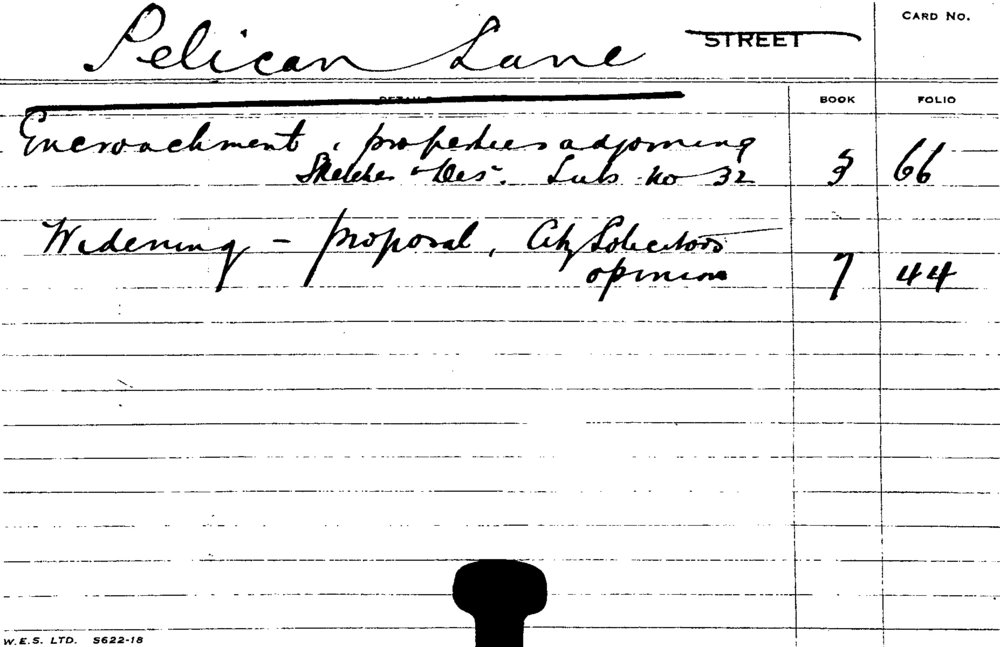 CARD NO.
Pelican Lane STREET
DETAILS BOOK FOLIO
Encroachment, properties adjoining
Sketches & Des. Subs no 32 5 66
Widening - proposal, City Solicitors
opinion 7 44
W.E.S. LTD. S622-18